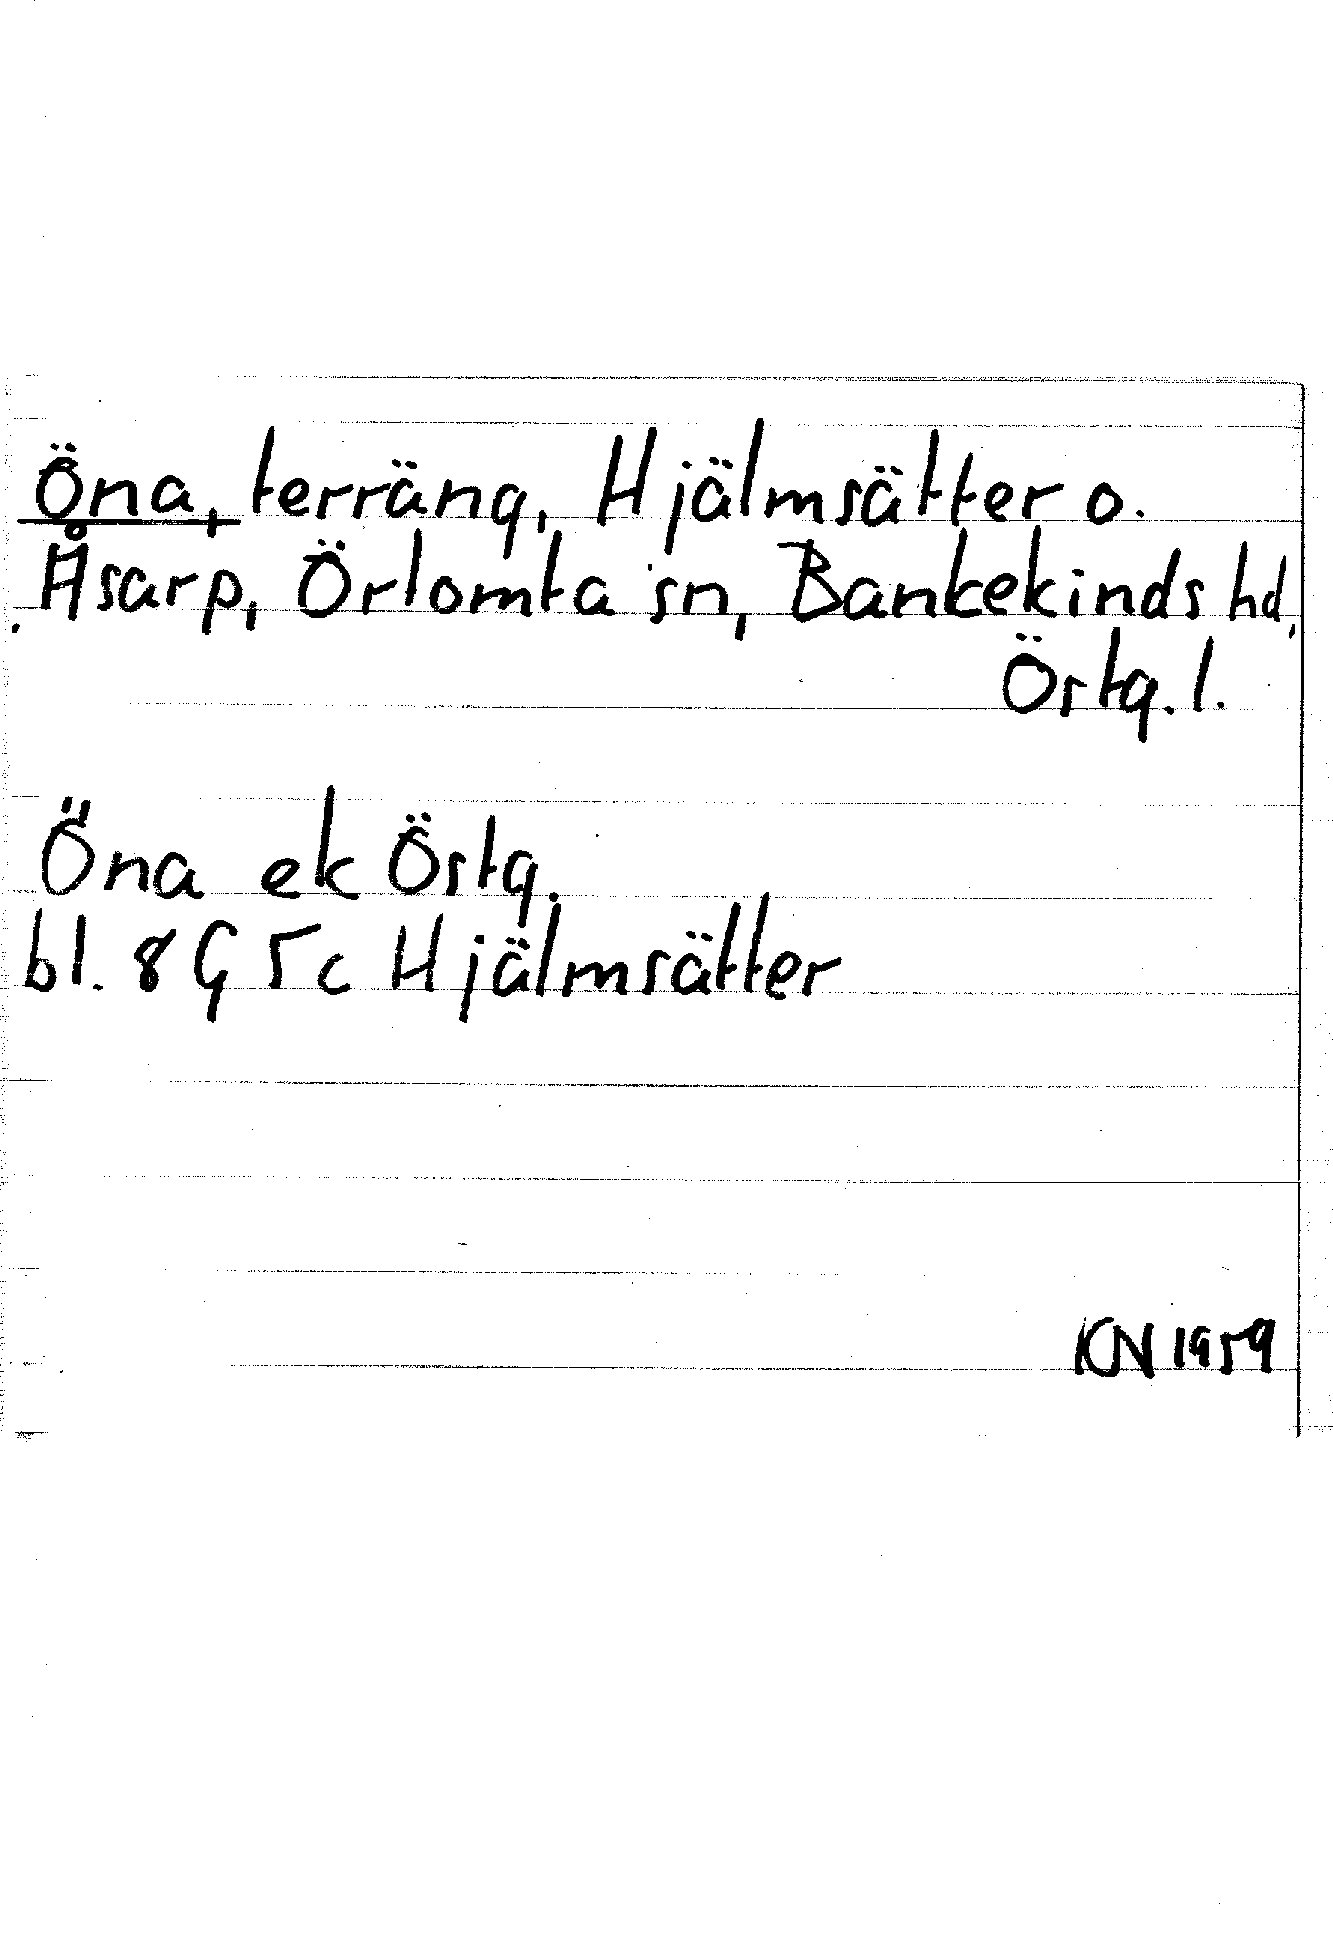 Öna, terräng, Hjälmsätter o.
Åsarp, Örlomta sn, Bankekinds hd,
Östg. l.
Öna ek Östg.
bl. 8G 5c Hjälmsätter
KN 1959